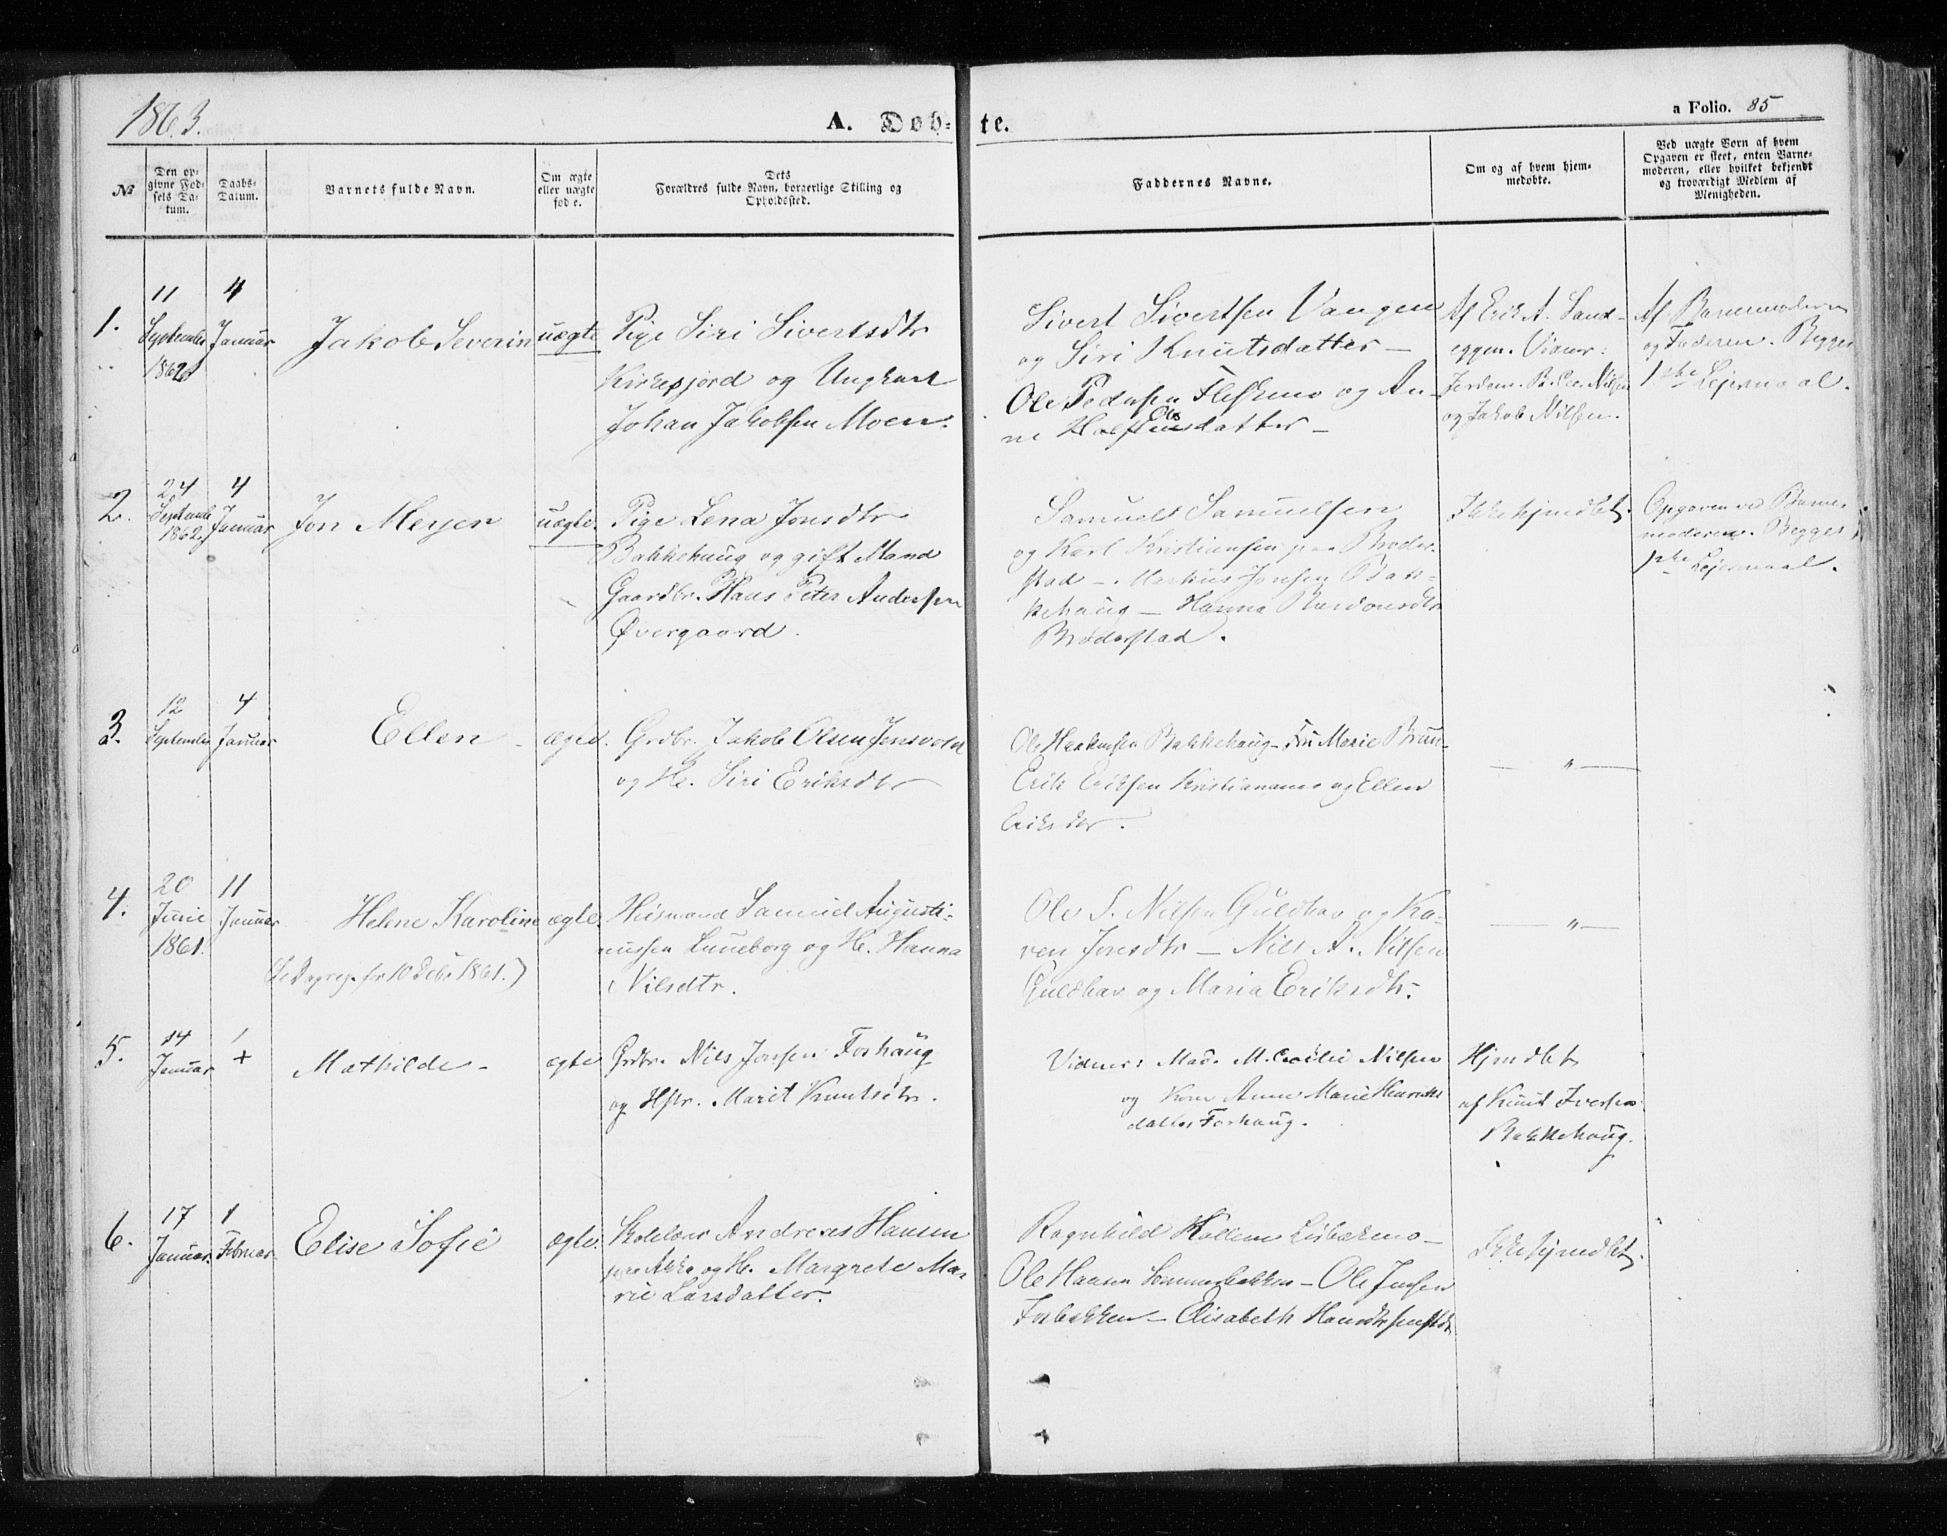 1863.
A. Døb-te.
a Folio. 85
No
Den op-
givne Fød-
sels Da-
tum.
Daabs-
Datum.
Barnets fulde Navn.
Om ægte
eller uægte
født.
Dets
Forældres fulde Navn, borgerlige Stilling og
Opholdssted.
Faddernes Navne.
Om og af hvem hjem-
medøbte.
Ved uægte Børn af hvem
Opgaven er skeet, enten Barne-
moderen, eller hvilket bekjendt
og troværdigt Medlem af
Menigheden.
1.
11
September
1862
4
Januar
Jakob Severin
uægte
Pige Siri Sivertsdtr
Kirkesjord og Ungkarl
Johan Jakobsen Moen.
Sivert Sivertsen Vangen
og Siri Knutsdatter –
Ole Pedersen Fleskmo og An-
ne datter –
Af Erik A. Sand-
eggen. Vidner:
Nilsen
og Jakob Nilsen.
Af Barnemoderen
og Faderen. Begges
1ste Lejermaal.
2.
24
Septembr
1862
4
Januar
Jon Meyer
uægte.
Pige Lena Jonsdtr
Bakkehaug og gift Mand
Gaardbr. Hans Peter Andersen
Øvergaard.
Samuel Samuelsen
og Karl Kristiansen paa Broder-
stad – Markus Jonsen Bak-
kehaug – Hanna
Broderstad.
Ikke hjmdbt.
Opgaven ved Barne-
moderen. Begges
1ste Lejermaal.
3.
12
September
4
Januar
Ellen –
ægte.
Grdbr. Jakob Olsen Jensvold
og H. Siri Eriksdtr
Ole Bakkehaug – Fru Marie Brun –
Erik Eriksen og Ellen
Eriksdtr.
– " –
4.
20
Juni
1861.
11
Januar
Helene Karoline
(Se Dagreg. for 10 Deb. 1861.)
ægte.
Husmand Samuel Augusti-
nussen Luneborg og H. Hanna
Nilsdtr.
Ole S. Nilsen Guldhav og Ka-
ren Jonsdtr – Nils A. Nilsen
Guldhav og Maria Eriksdtr.
– " –
5.
14
Januar
+
Mathilde –
ægte
Grdbr. Nils Jonsen Forhaug
og Hstr. Marit Knutsdtr.
Vidner: Mad. M. Cecilie Nilsen
og Kone Anne Marie Henriks
datter Forhaug.
Hjmdbt
af Knut Iversen
Bakkehaug.
6.
17
Januar.
1
Februar.
Elise Sofie
ægte.
Skolelærer Andreas Hansen
paa og H. Margrete Ma-
rie Larsdatter.
Ragnhild –
Ole Hansen Sommerbakken – Ole Jensen
– Elisabeth
Ikke hjmdbt.